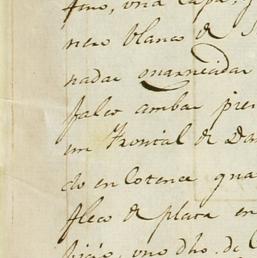 fino, una Capa,
nero blanco de S
nadas guarnecidas
falso ambar pie
un Frontal de Da
do en Cotence gua
fleco de plata en
uno dho. de